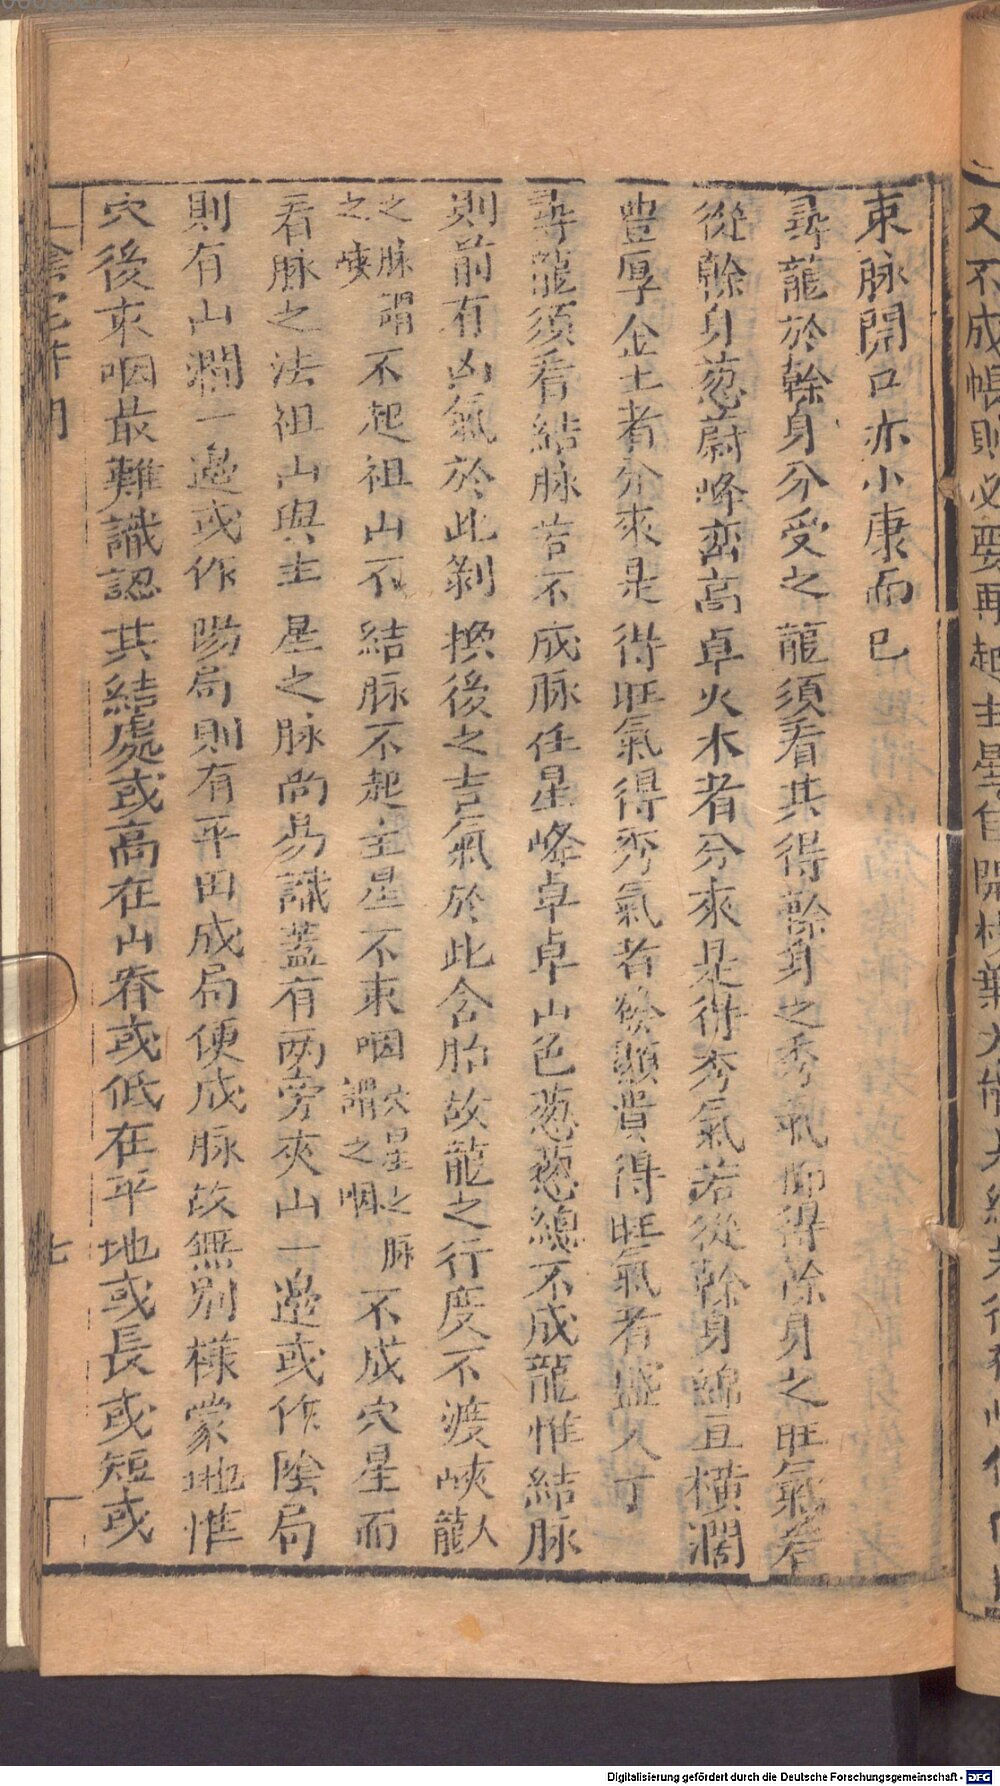 束脉開口亦小康而已
尋龍於榦身分受之龍須看其得榦身之秀氣而得榦身之旺氣若
從榦身葱蔚峰巒高卓火木者分來是得秀氣若從榦身綿亘横濶
豊厚金土者分來是得旺氣得秀氣者發顯貴得旺氣者盛人丁
尋龍須看結脉若不成脉任星峰卓卓山色葱葱總不成龍惟結脉
則前有凶氣於此剝換後之吉氣於此含胎故龍之行度不渡峽龍入
之脉謂之峽不起祖山不結脉不起主星不束咽穴星之脉謂之咽不成穴星而
看脉之法祖山與主星之脉尚易識葢有两旁夾山一邉或作陰局
則有山澗一邉或作陽局則有平田成局便成脉故無别様蒙地惟
穴後束咽最難識認其結處或高在山脊或低在平地或長或短或
七
又不成帳則必要再起主星自開枝葉
Digitalisierung gefördert durch die Deutsche Forschungsgemeinschaft - DFG